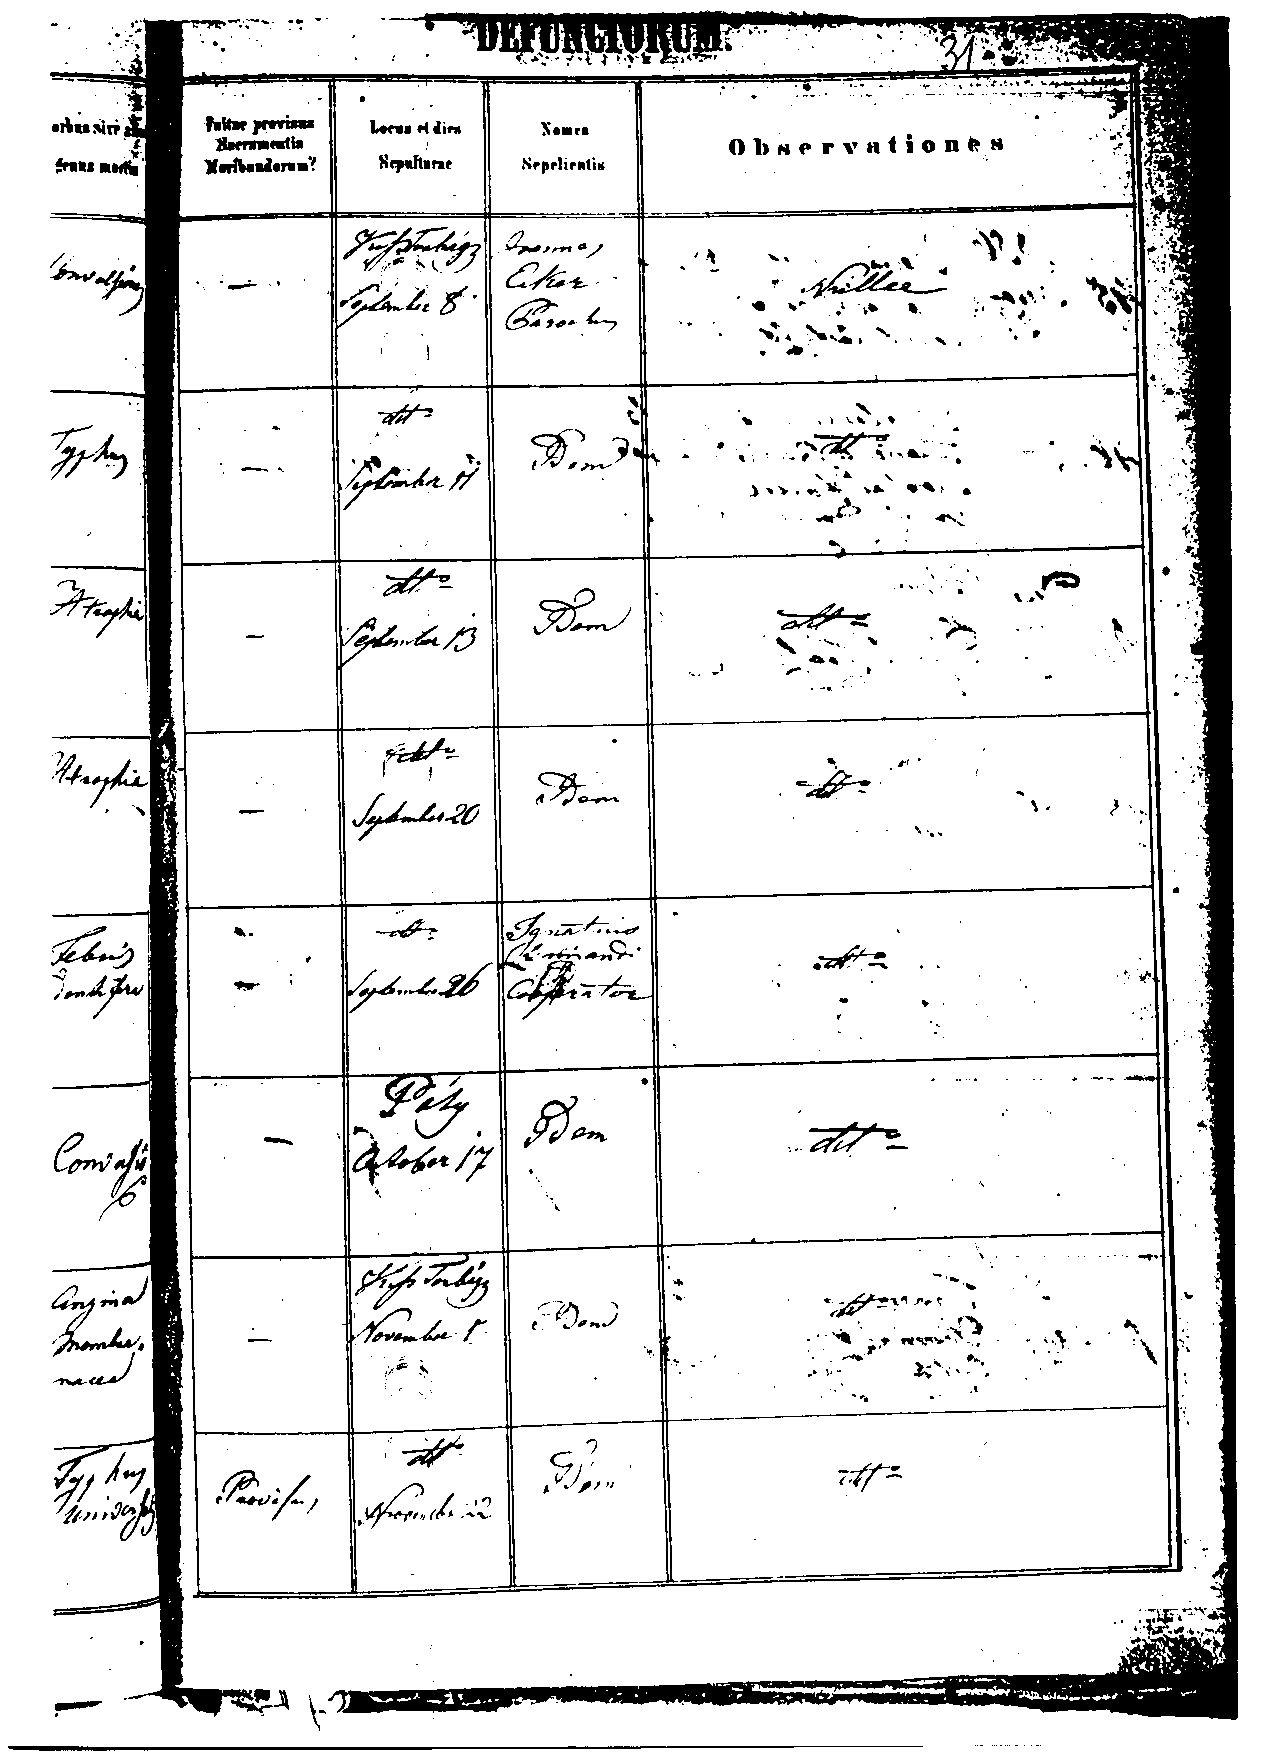 DEFUNCTORUM.
31
Fuitne provisus
Sacramentis
Moribundorum?
Locus et dies
Sepulturae
Nomen
Sepelientis
Observationes
—
September 8
Eker
Parochus
Nullae
Typhus
—
dtto
September 11
Idem
dtto
Atrophia
—
dtto
September 13
Idem
dtto
Atrophia
—
dtto
September 20
Idem
dtto
Febris
—
dtto
September 26
Ignatius
Cooperator
dtto
—
Páty
October 17
Idem
dtto
Angina
Membra-
nacea
—
November 8
Idem
dtto
Typhus
Provisus
dtto
November 22
Idem
dtto